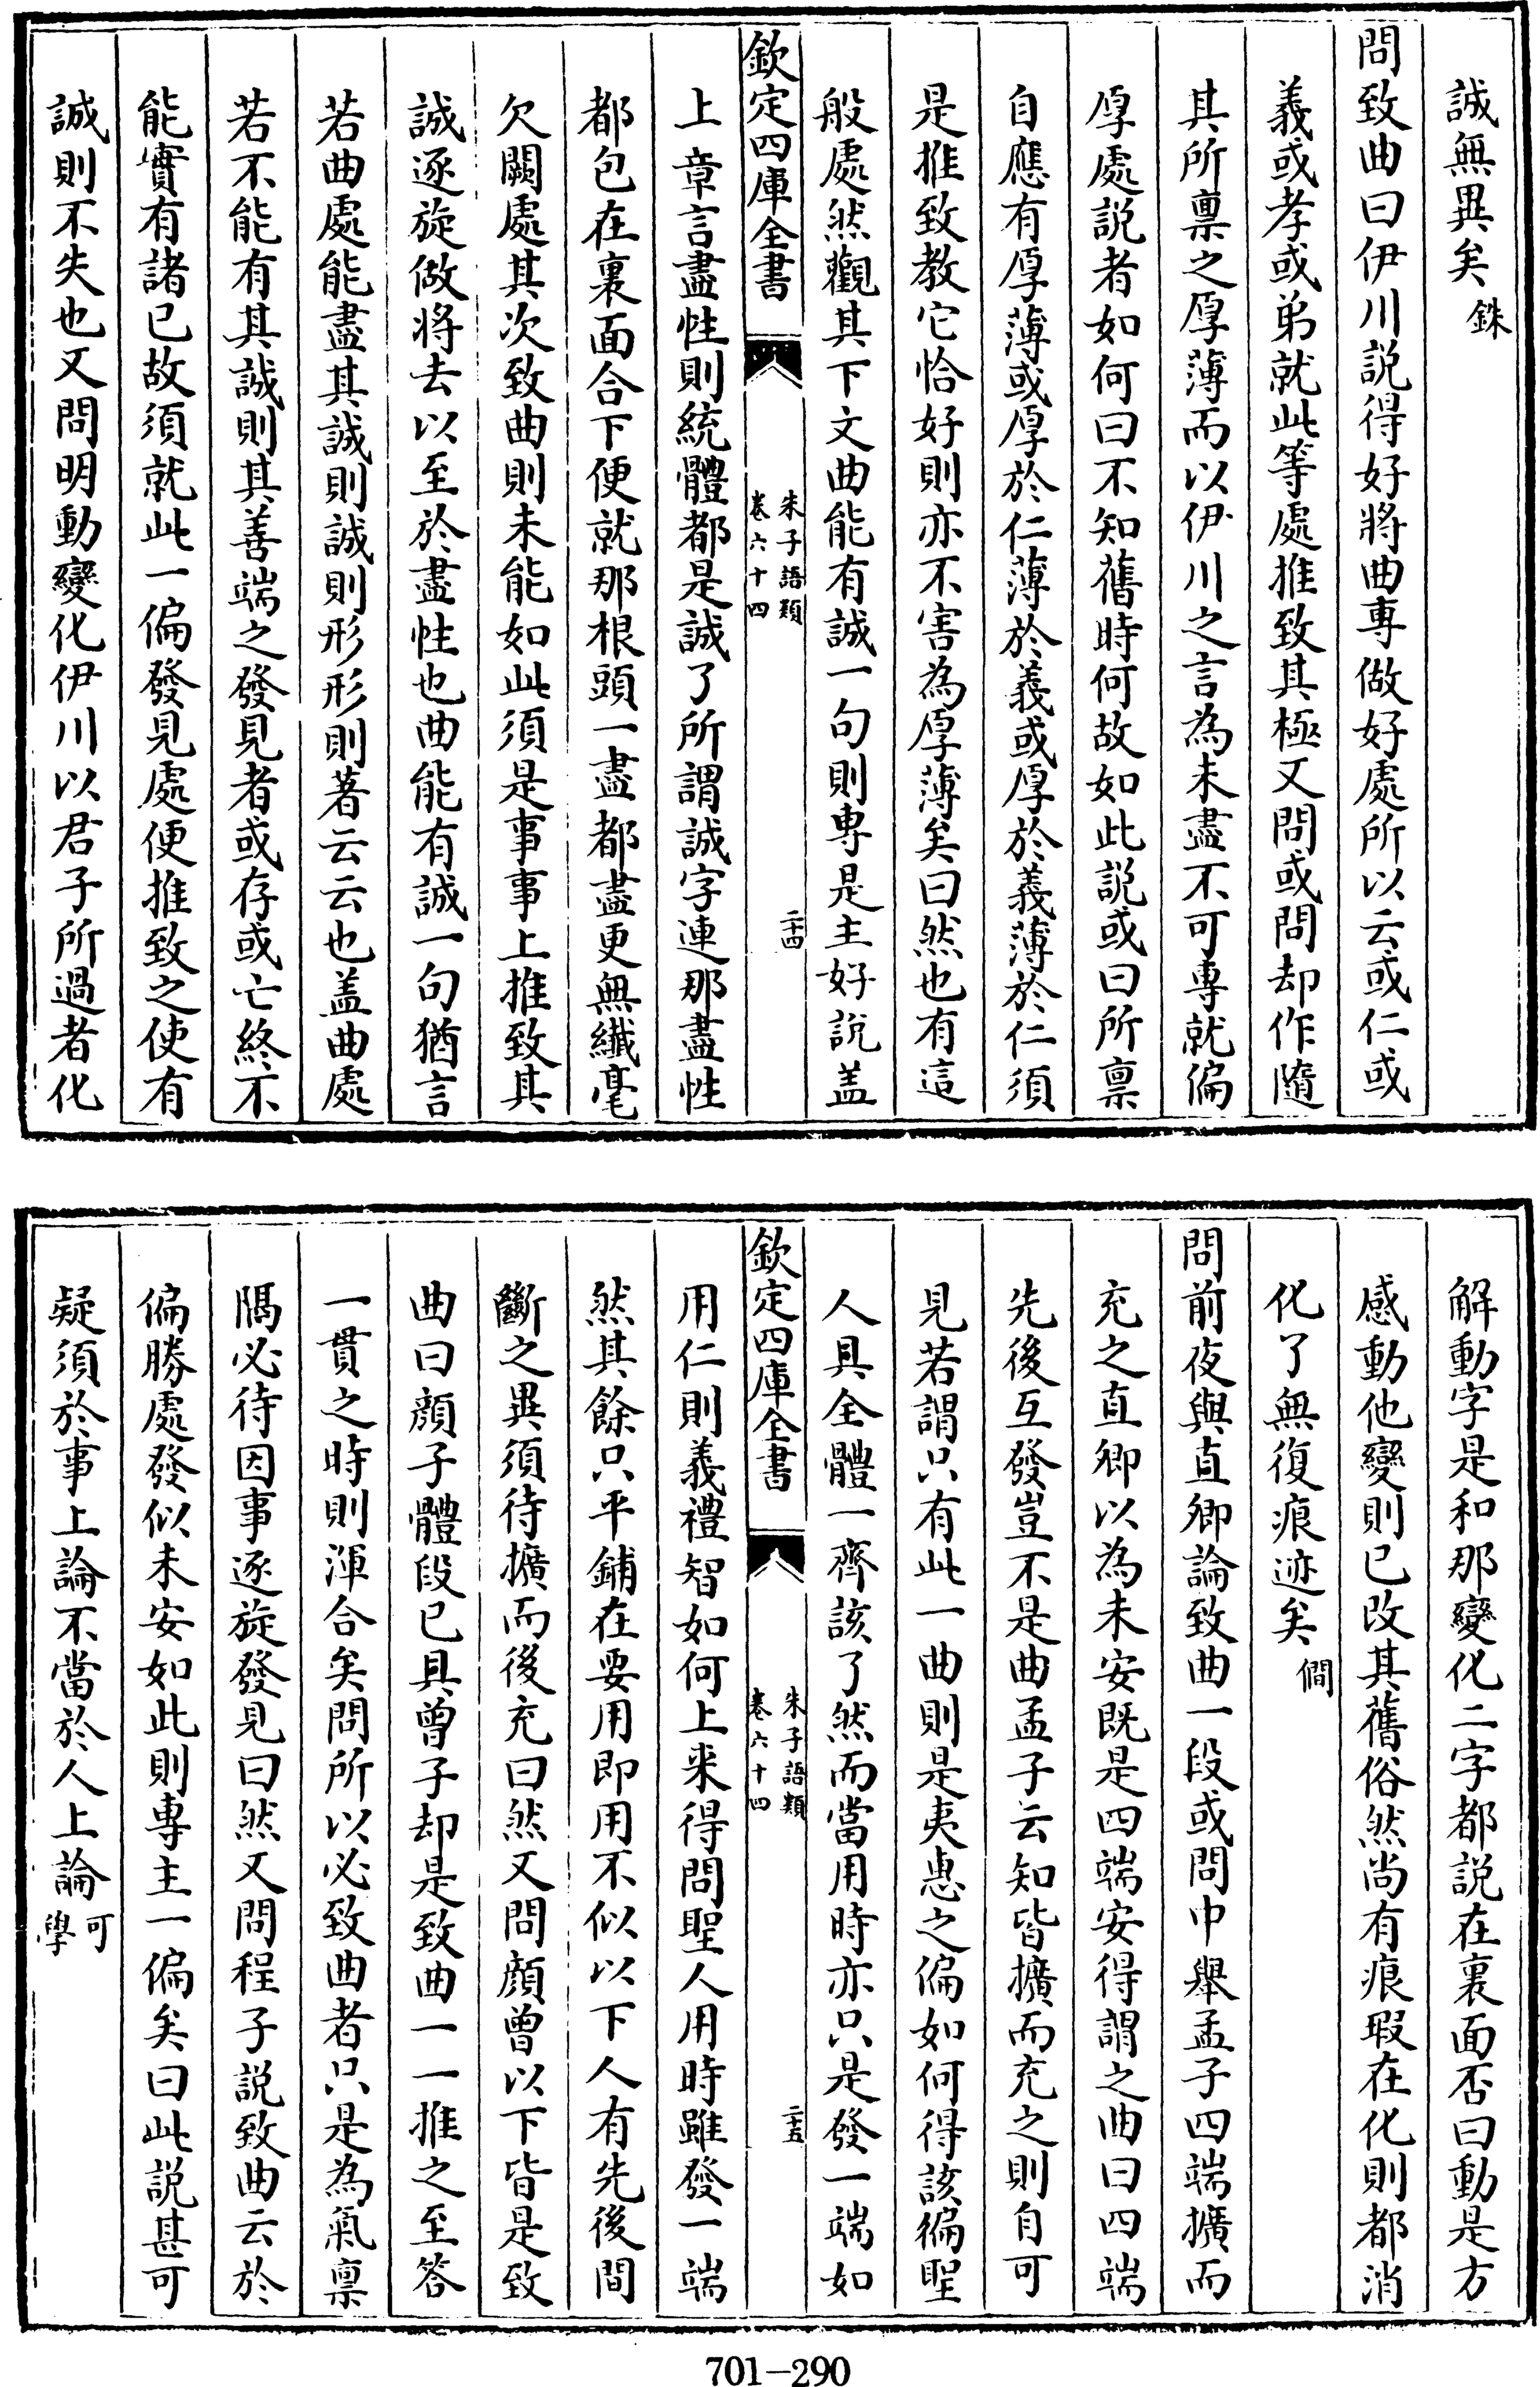 誠無異矣銖
問致曲曰伊川説得好將曲專做好處所以云或仁或
義或孝或弟就此等處推致其極又問或問却作隨
其所禀之厚薄而以伊川之言為未盡不可專就偏
厚處説者如何曰不知舊時何故如此説或曰所禀
自應有厚薄或厚於仁薄於義或厚於義薄於仁須
是推致教它恰好則亦不害為厚薄矣曰然也有這
般處然觀其下文曲能有誠一句則專是主好説盖
欽定四庫全書
朱子語類
卷六十四
二十四
上章言盡性則統體都是誠了所謂誠字連那盡性
都包在裏面合下便就那根頭一盡都盡更無纖毫
欠闕處其次致曲則未能如此須是事事上推致其
誠逐旋做將去以至於盡性也曲能有誠一句猶言
若曲處能盡其誠則誠則形形則著云云也盖曲處
若不能有其誠則其善端之發見者或存或亡終不
能實有諸已故須就此一偏發見處便推致之使有
誠則不失也又問明動變化伊川以君子所過者化
解動字是和那變化二字都説在裏面否曰動是方
感動他變則已改其舊俗然尚有痕瑕在化則都消
化了無復痕迹矣僩
問前夜與直卿論致曲一段或問中舉孟子四端擴而
充之直卿以為未安既是四端安得謂之曲曰四端
先後互發豈不是曲孟子云知皆擴而充之則自可
見若謂只有此一曲則是夷惠之偏如何得該徧聖
人具全體一齊該了然而當用時亦只是發一端如
欽定四庫全書
朱子語類
卷六十四
二十五
用仁則義禮智如何上来得問聖人用時雖發一端
然其餘只平鋪在要用即用不似以下人有先後間
斷之異須待擴而後充曰然又問顔曾以下皆是致
曲曰顔子體段已具曾子却是致曲一一推之至答
一貫之時則渾合矣問所以必致曲者只是為氣禀
隔必待因事逐旋發見曰然又問程子説致曲云於
偏勝處發似未安如此則專主一偏矣曰此説甚可
疑須於事上論不當於人上論可學
701-290